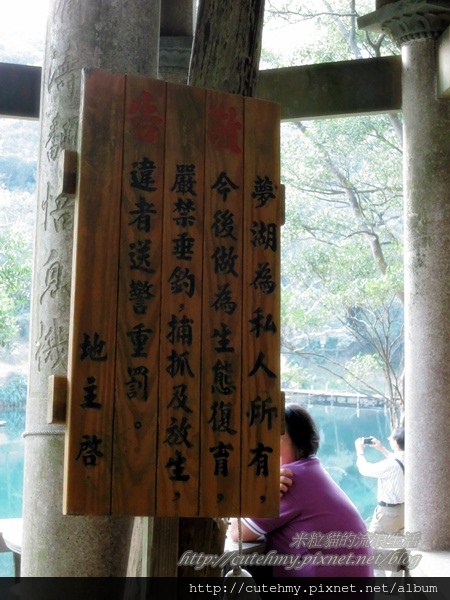 敬告
夢湖為私人所有,
今後做為生態復育,
嚴禁垂釣,捕抓及放生,
違者送警重罰。
地主啓
翻悟息機
米粒貓的生活
http://cutehmy.pixnet.net/blog
http://cutehmy.pixnet.net/album